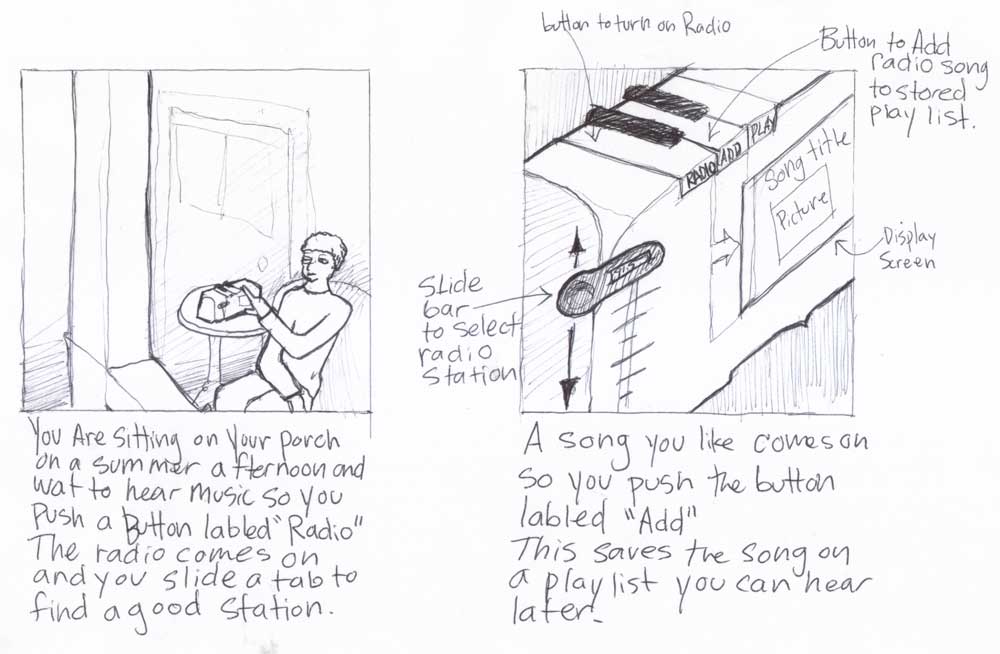 button to turn on Radio
Button to Add
radio song
to stored
play list.
RADIO ADD PLAY
Song title
Picture
Display
Screen
Slide
bar
to select
radio
Station
You Are sitting on your porch
on a summer afternoon and
wat to hear music so you
push a Button labled "Radio"
The radio comes on
and you slide a tab to
find a good Station.
A song you like comes on
so you push the button
labled "Add"
This saves the song on
a play list you can hear
later.